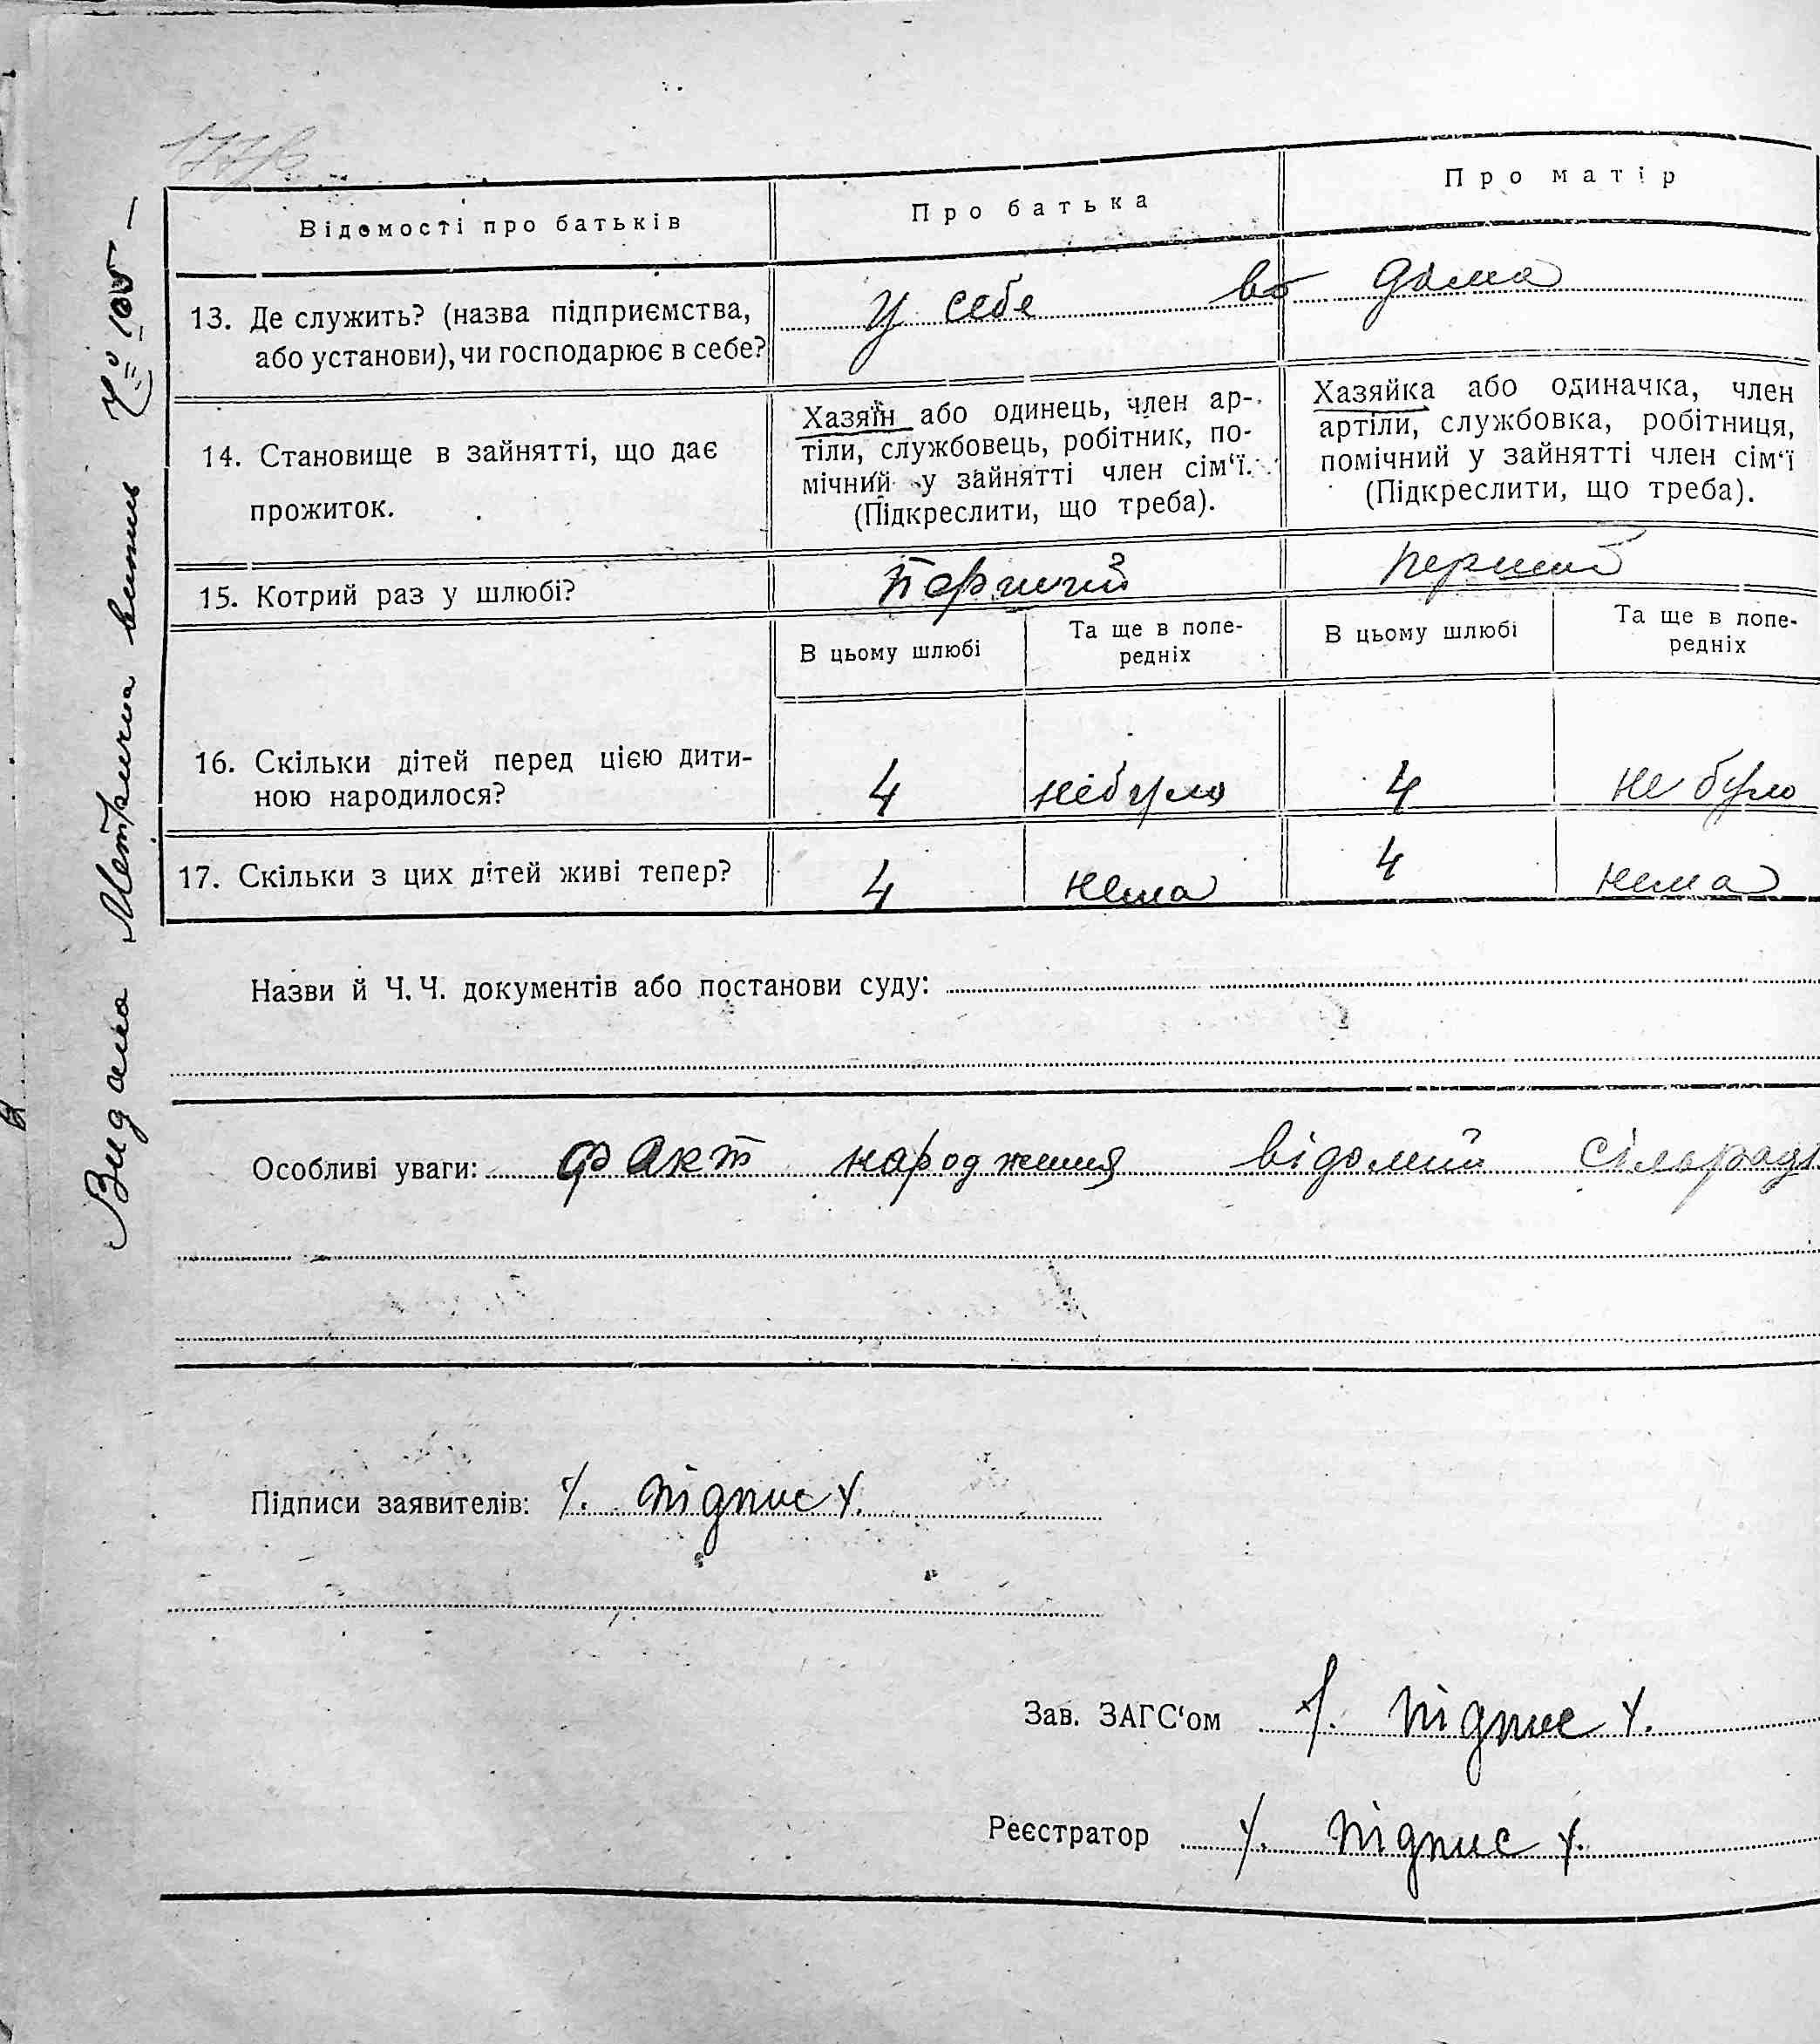 Відомості про батьків
Про батька
Про матір
13. Де служить? (назва підприємства,
або установи), чи господарює в себе?
У себе во дома
14. Становище в зайнятті, що дає
прожиток.
Хазяїн або одинець, член ар-
тіли, службовець, робітник, по-
мічний у зайнятті член сім‘ї.
(Підкреслити, що треба).
Хазяйка або одиначка, член
артіли, службовка, робітниця,
помічний у зайнятті член сім‘ї
(Підкреслити, що треба).
15. Котрий раз у шлюбі?
Перший
перший
В цьому шлюбі
Та ще в попе-
редніх
В цьому шлюбі
Та ще в попе-
редніх
16. Скільки дітей перед цією дити-
ною народилося?
4
не було
4
не було
17. Скільки з цих дітей живі тепер?
4
нема
4
нема
Назви й Ч. Ч. документів або постанови суду:
Особливі уваги: Факт народження відомий сільраді
Підписи заявителів: /. підпис /.
Зав. ЗАГС‘ом /. підпис /.
Реєстратор /. підпис /.
Видана Метрична випись № 105 —